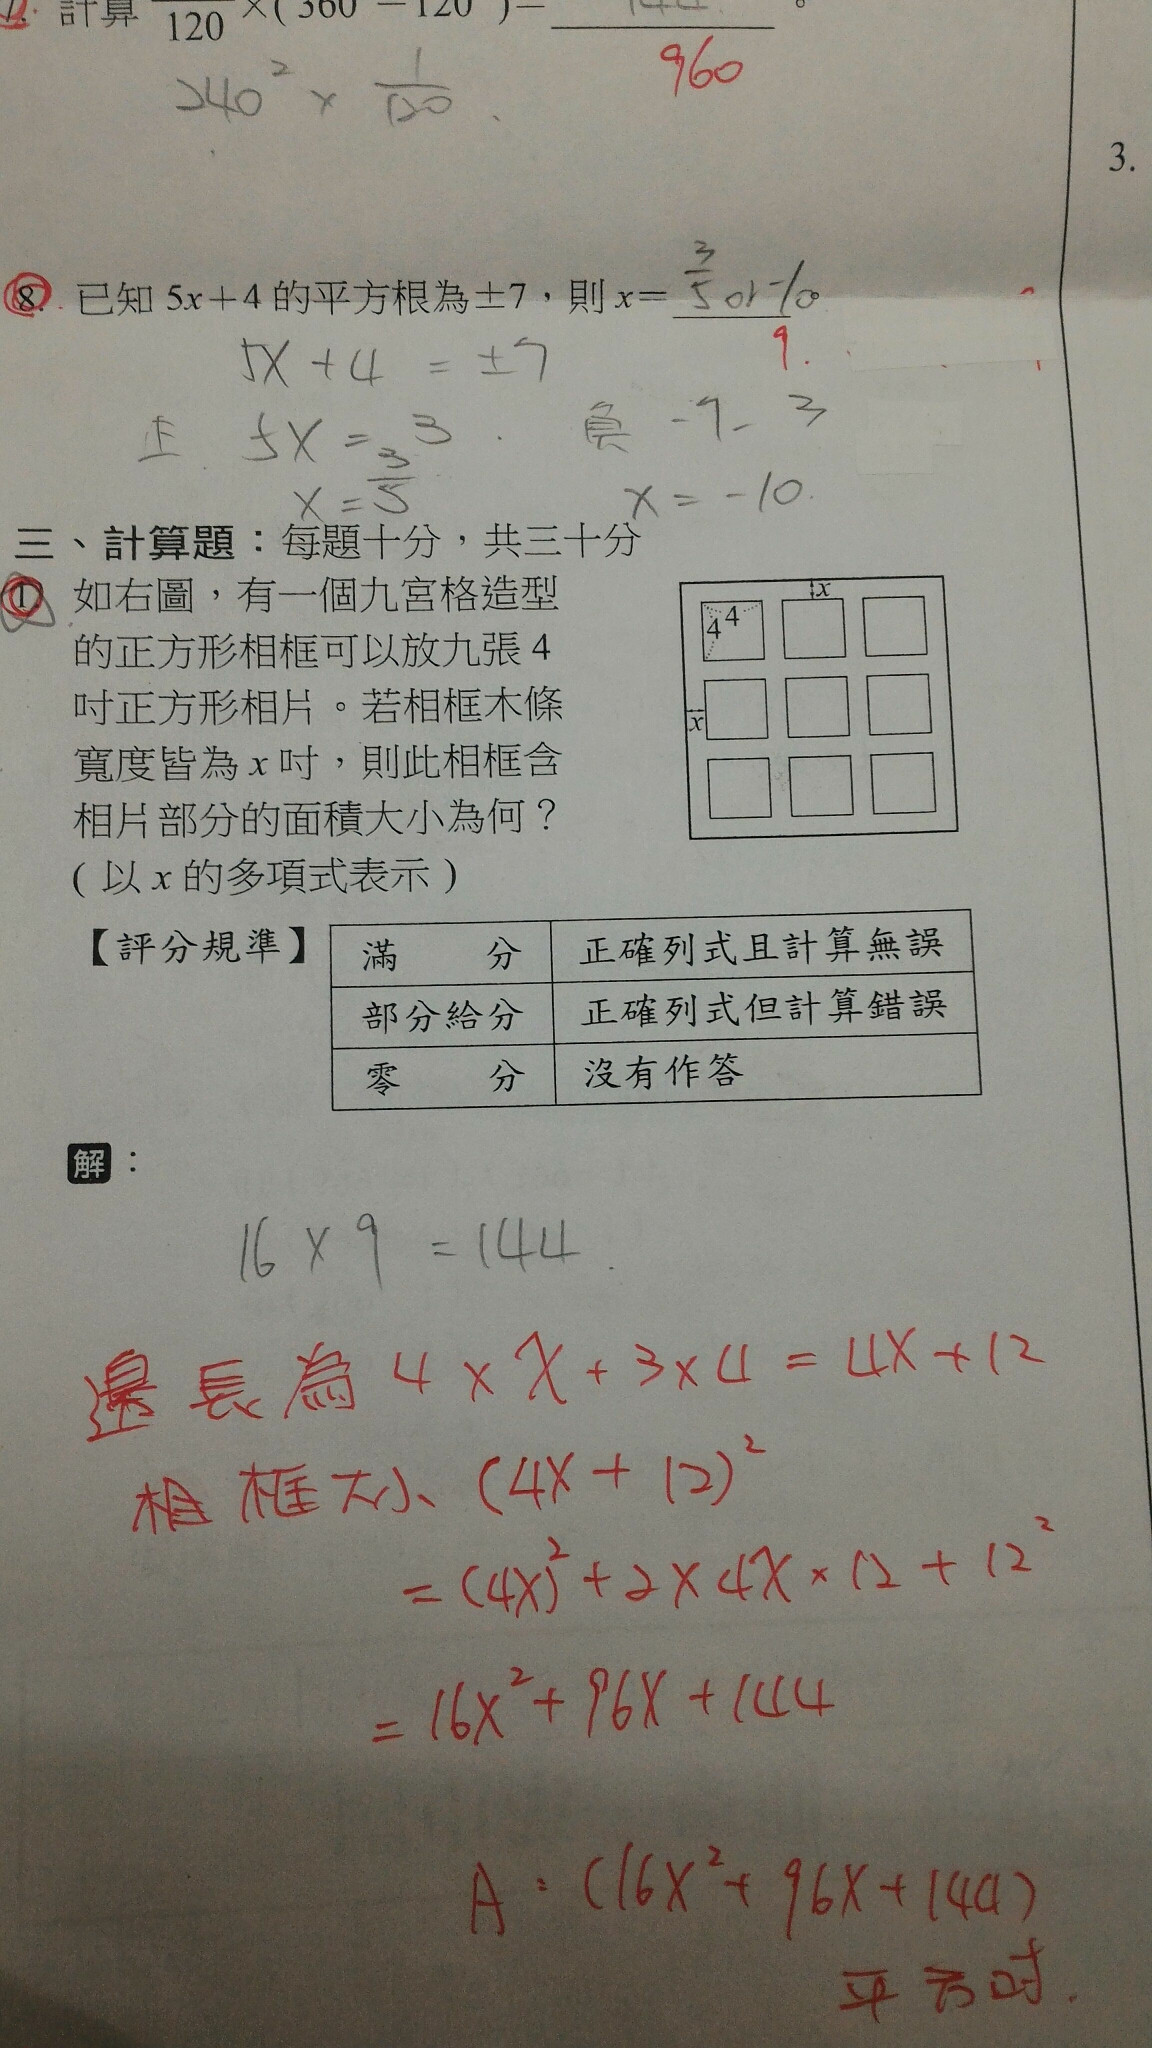 計算 ──/120 ×(360²−120²)=
960
240² × 1/120
3.
8. 已知 5x+4 的平方根為±7,則 x= 3/5 or -10。
9.
5X + 4 = ±7
正 5X = 3 負 -7- 3
X = 3/5 X = -10.
三、計算題:每題十分,共三十分
1. 如右圖,有一個九宮格造型
的正方形相框可以放九張 4
吋正方形相片。若相框木條
寬度皆為 x 吋,則此相框含
相片部分的面積大小為何?
(以 x 的多項式表示)
x
4 4
x
【評分規準】
滿 分 正確列式且計算無誤
部分給分 正確列式但計算錯誤
零 分 沒有作答
解:
16 × 9 = 144.
邊長為 4 × X + 3×4 = 4X + 12
相框大小 (4X + 12)²
= (4X)² + 2 × 4X × 12 + 12²
= 16X² + 96X + 144
A:(16X² + 96X + 144)
平方吋.